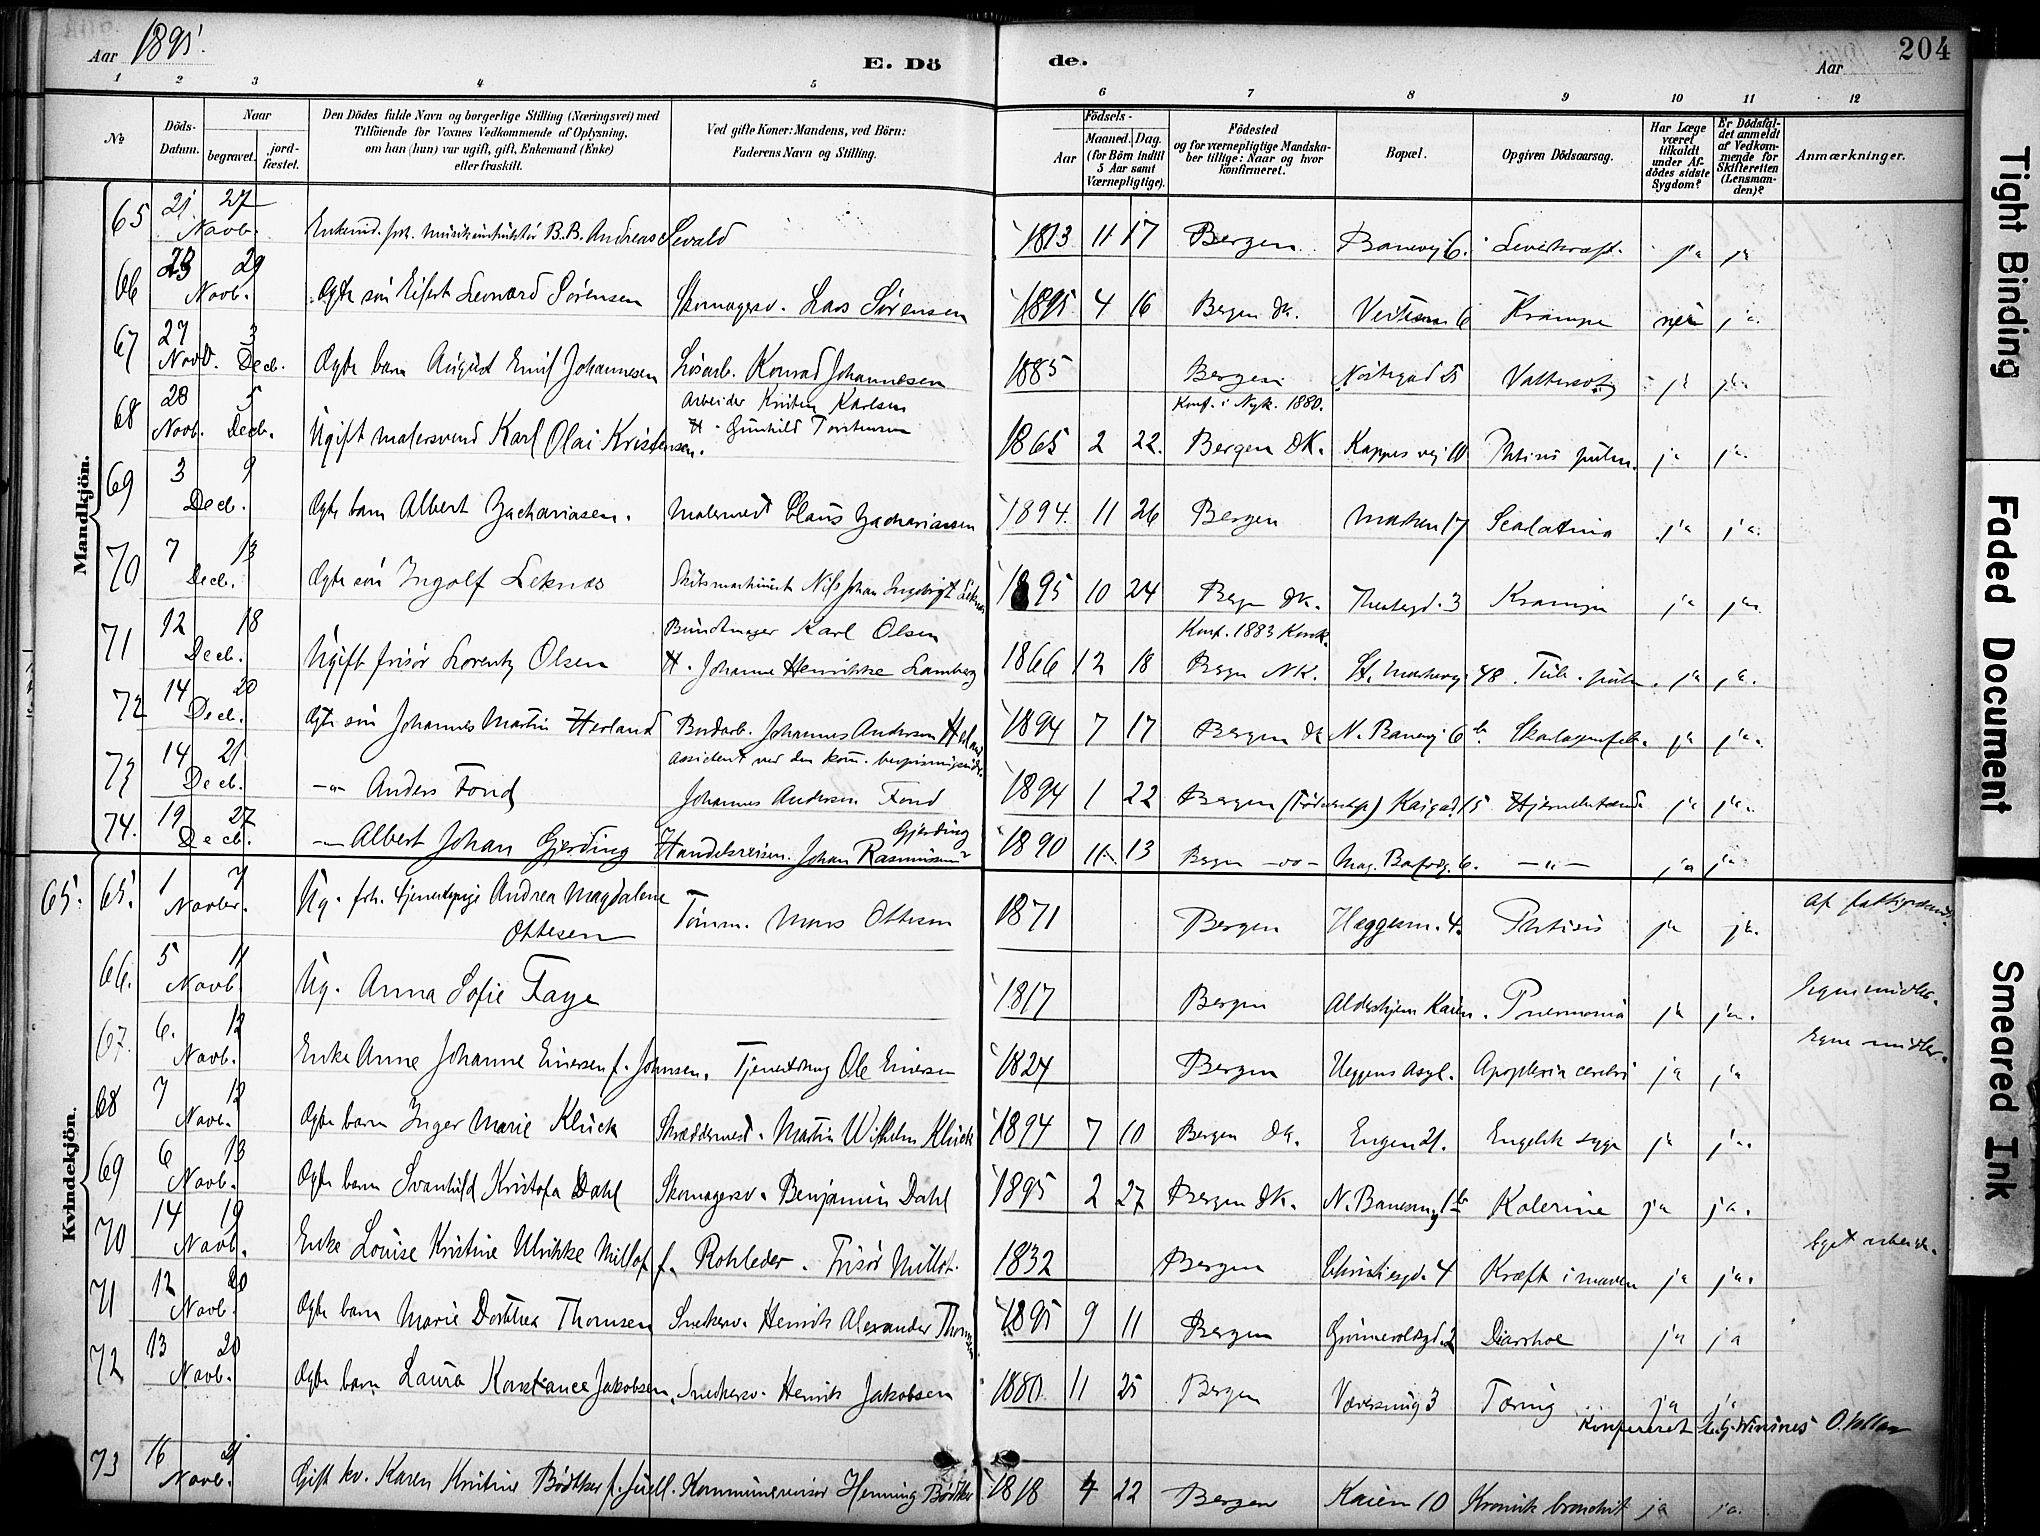 Aar 1895.
E. Dö
de.
Aar
204
1 2 3 4 5 6 7 8 9 10 11 12
No
Döds-Datum.
Naar
begravet.
jord-fæstet.
Den Dödes fulde Navn og borgerlige Stilling (Næringsvei) med
Tilföiende for Voxnes Vedkommende af Oplysning,
om han (hun) var ugift, gift, Enkemand (Enke)
eller fraskilt.
Ved gifte Koner: Mandens, ved Börn:
Faderens Navn og Stilling.
Födsels-
Aar
Maaned. Dag.
(for Börn indtil 5 Aar samt Værnepligtige).
Födested
og for værnepligtige Mandskaber tillige: Naar og hvor konfirmeret.
Bopæl.
Opgiven Dödsaarsag.
Har Læge været tilkaldt under Afdödes sidste Sygdom?
Er Dödsfaldet anmeldt af Vedkommende for Skifteretten (Lensmanden)?
Anmærkninger.
Mandkjön.
65 21 27 Novb. Enkemd. B.B. Andreas Sevald 1813 11 17 Bergen 6. ja ja
66 23 29 Novb. Ægte søn Eilert Leonard Sørensen Skomagersv. Lars Sørensen 1895 4 16 Bergen Dk. 6 Krampe nei ja.
67 27 Novb. 3 Decb. Ægte barn August Emil Johannesen Løsarb. Konrad Johannesen 1885 Bergen Nøstegad 25 Vattersot ja ja
68 28 Novb. 5 Decb. Ugift malersvend Karl Olai Kristensen. Arbeider Kristen Karlsen
H. Gunhild Torstensen 1865 2 22. Konf. i Nyk. 1880.
Bergen DK. Kappes vej 10 Phtisis pulm. ja ja.
69 3 9 Decb. Ægte barn Albert Zachariasen. Malermest Claus Zachariassen 1894. 11 26 Bergen Marken 17 Scalatina ja ja.
70 7 13 Decb. Ægte søn Ingolf Leknes Skibsmaskinist Nils Johan Ingebrigt Leknes 1895 10 24 Bergen DK. Theatergd. 3 Krampe ja ja.
71 12 18 Decb. Ugift frisør Lorentz Olsen Bundtmager Karl Olsen
H. Johanne Henrikke Lamberg 1866 12 18 Konf. 1883 Korsk.
Bergen NK. St. Markevej 48. Tub. pulm. ja ja.
72 14 20 Decb. Ægte søn Johannes Martin Herland Bordarb. Johannes Andersen Herland 1894 7 17 Bergen Dk N. Banevej 6 b. Skarlagensfeb. ja ja.
73 14 21 Decb. -"- Anders Fond Assistent ved den kom.
Johannes Andersen Fond 1894 1 22 Bergen Kaigad. 15 ja ja.
74. 19 27 Decb. -"- Albert Johan Gjerding Handelsreisen. Johan Rasmussen Gjerding 1890 11 13 Bergen -"- 6. -"- ja ja
Kvindekjön.
65. 65. 1 7 Novber. Ug. frh. tjenestepige Andrea Magdalene
Ottesen Tømm. Mons Ottesen 1871 Bergen Heggesm. 4. Phtisis ja ja. Af fattigvæsnet.
66. 5 11 Novb. Ug. Anna Sofie Faye 1817 Bergen Alderhjem Kaien. Pneumonia ja ja. Egne midler.
67. 6. 12 Novb. Enke Anne Johanne Eniersen f. Johnsen. Tjenestdreng Ole Eniersen 1824 Bergen Heggens Asyl. Apoplexia cerebri ja ja Egne midler.
68 7 12 Novb. Ægte barn Inger Marie Klück Skræddermest. Martin Wilhelm Klück 1894 7 10 Bergen Dk. Engen 21. Engelsk syge ja ja.
69 6 13 Novb. Ægte barn Svanhild Kristofa Dahl Skomagersv. Benjamin Dahl 1895 2 27 Bergen DK. N. Banevej 1 b Kolerine ja ja.
70 14 19 Novb. Enke Louise Kristine Ulrikke Millot f. Rohleder. Frisør Millot. 1832 Bergen Christiesgd. 4 Kræft i maven ja ja. Eget arbeide.
71 12 20 Novb. Ægte barn Marie Dorthea Thomsen Snekersv. Henrik Alexander Thomsen 1895 9 11 Bergen Grønnevoldsgd. 2 Diarrhoe ja ja
72 13 20 Novb. Ægte barn Laura Konstance Jakobsen. Snekersv. Henrik Jakobsen 1880. 11 25 Bergen 3 Tæring ja ja
Konfereret
73 16 21 Novb. Gift kv. Karen Kristine Bødtker f. Juell. Kommunerevisor Henning Bødtker 1818 4 22 Bergen Kaien 10 Kronisk bronchit ja ja.
Tight Binding
Faded Document
Smeared Ink